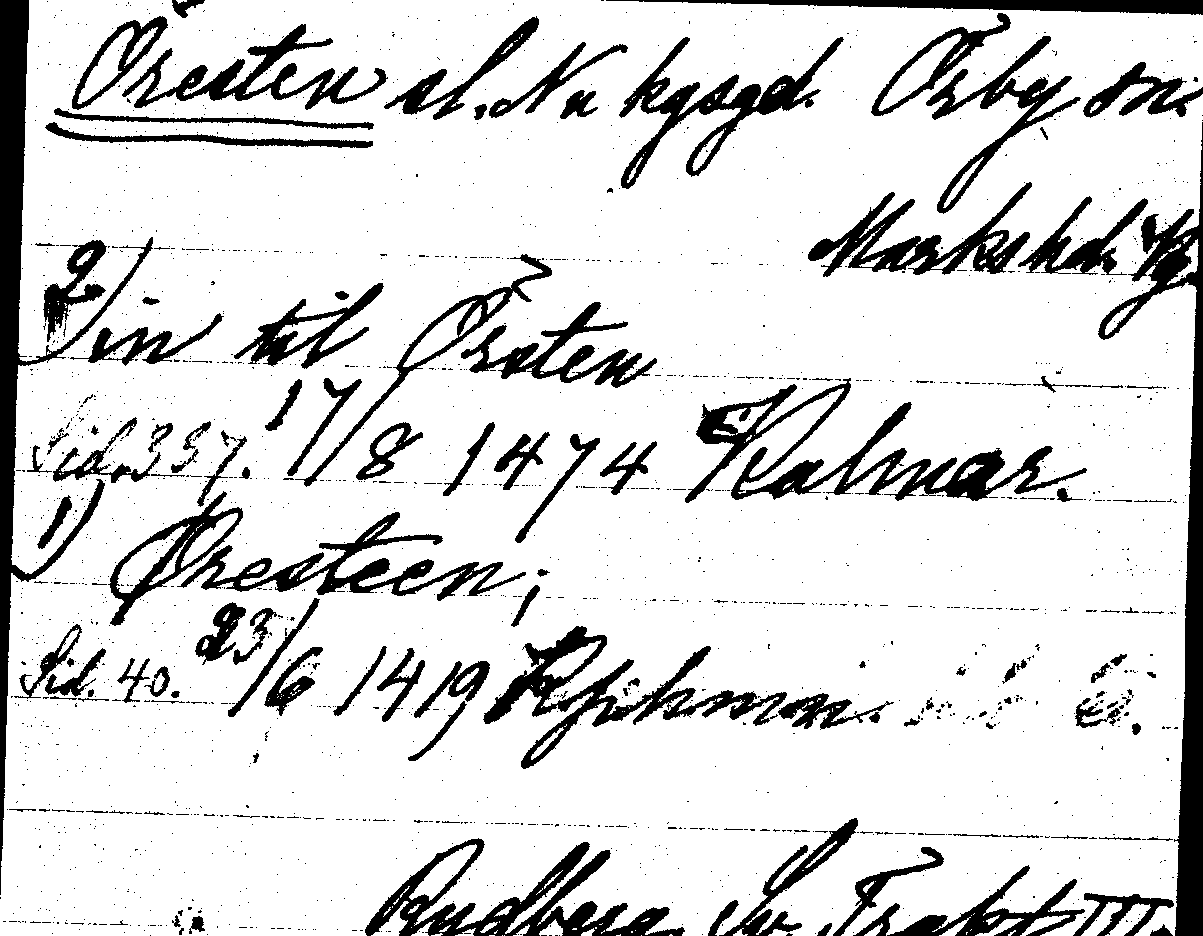 Öresten sl. Nu kgsgd. Örby sn.
Marks hd. Vg
2) in til Örsten
Sid. 337. 17/8 1474 Kalmar.
1) Øresteen;
Sid. 40. 23/6 1419 Kphmn.
Rydberg Sv. Trakt III.